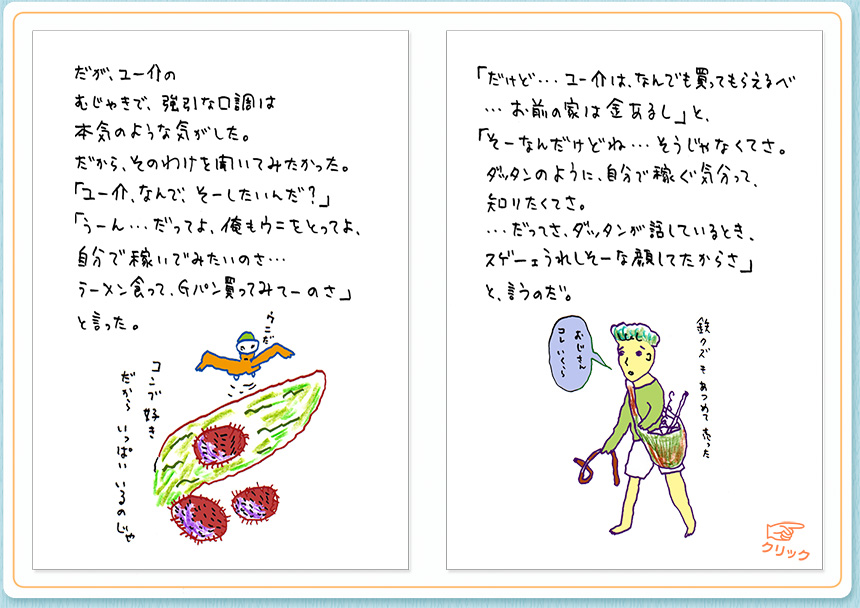 だが、ユー介の
むじゃきで、強引な口調は
本気のような気がした。
だから、そのわけを聞いてみたかった。
「ユー介、なんで、そーしたいんだ？」
「うーん…だってよ、俺もウニをとってよ、
自分で稼いでみたいのさ…
ラーメン食って、Gパン買ってみてーのさ」
と言った。
ウニだ
コンブ好き
だから いっぱい いるのじゃ
「だけど…ユー介は、なんでも買ってもらえるべ
…お前の家は金あるし」と、
「そーなんだけどね…そうじゃなくてさ。
ダッタンのように、自分で稼ぐ気分って、
知りたくてさ。
…だってさ、ダッタンが話しているとき、
スゲーェうれしそーな顔してたからさ」
と、言うのだ。
おじさん
コレ いくら
鉄クズも あつめて 売った
クリック